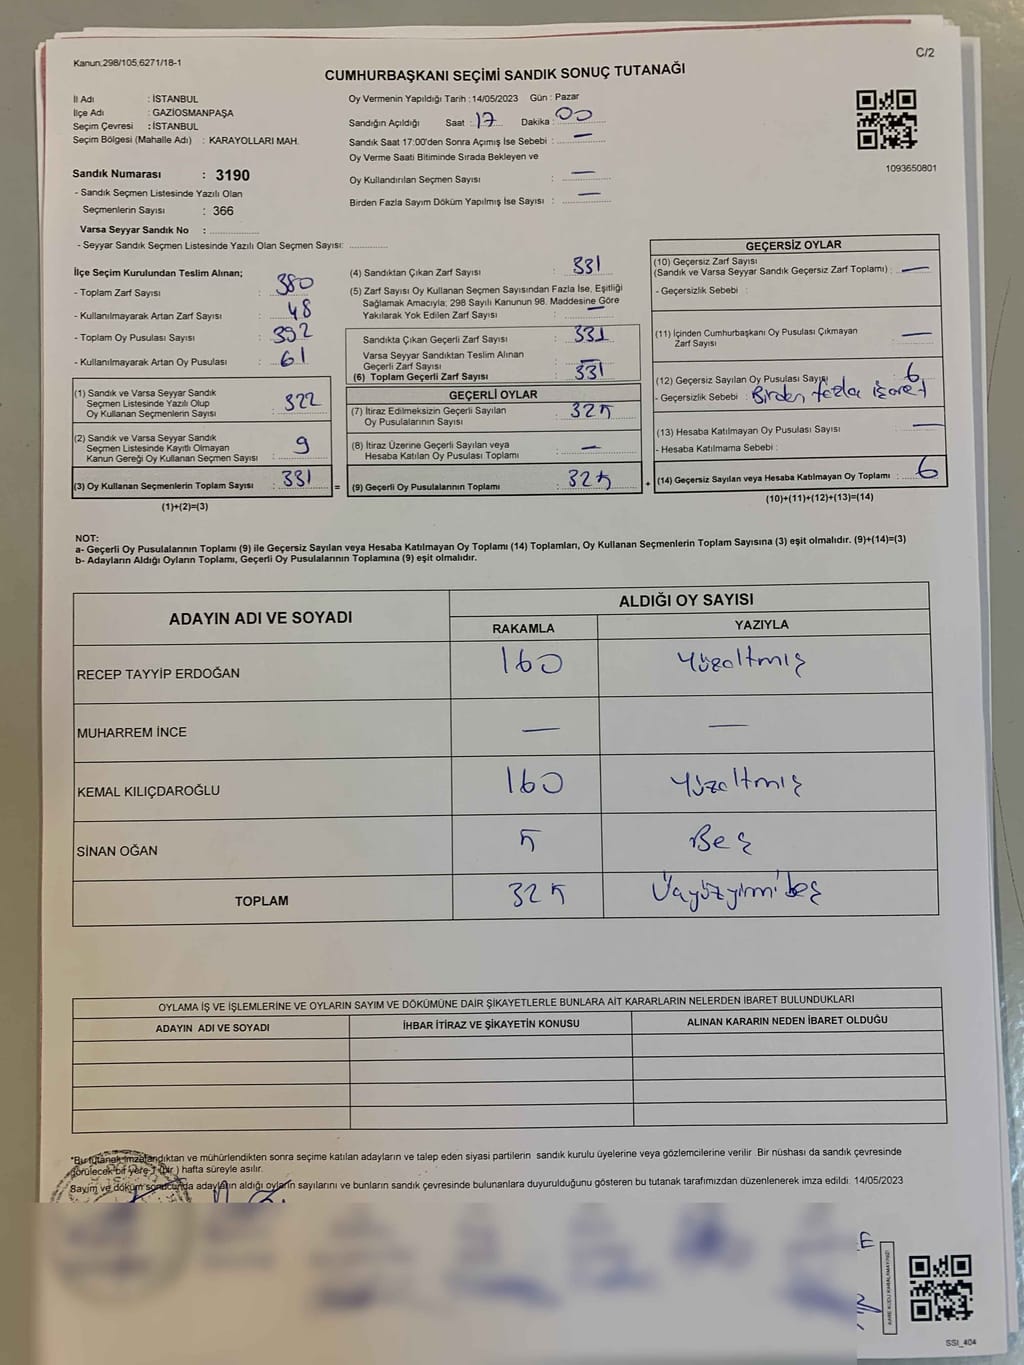 Kanun:298/105,6271/18-1
C/2
CUMHURBAŞKANI SEÇİMİ SANDIK SONUÇ TUTANAĞI
İl Adı : İSTANBUL
İlçe Adı : GAZİOSMANPAŞA
Seçim Çevresi : İSTANBUL
Seçim Bölgesi (Mahalle Adı) : KARAYOLLARI MAH.
Oy Vermenin Yapıldığı Tarih : 14/05/2023 Gün : Pazar
Sandığın Açıldığı Saat : 17 Dakika : 00
Sandık Saat 17:00'den Sonra Açımış İse Sebebi : —
Oy Verme Saati Bitiminde Sırada Bekleyen ve
Oy Kullandırılan Seçmen Sayısı : —
Birden Fazla Sayım Döküm Yapılmış İse Sayısı : —
1093650801
Sandık Numarası : 3190
- Sandık Seçmen Listesinde Yazılı Olan
Seçmenlerin Sayısı : 366
Varsa Seyyar Sandık No : ..............
- Seyyar Sandık Seçmen Listesinde Yazılı Olan Seçmen Sayısı: ............
İlçe Seçim Kurulundan Teslim Alınan;
- Toplam Zarf Sayısı : 380
- Kullanılmayarak Artan Zarf Sayısı : 48
- Toplam Oy Pusulası Sayısı : 392
- Kullanılmayarak Artan Oy Pusulası : 61
(1) Sandık ve Varsa Seyyar Sandık
Seçmen Listesinde Yazılı Olup
Oy Kullanan Seçmenlerin Sayısı : 322
(2) Sandık ve Varsa Seyyar Sandık
Seçmen Listesinde Kayıtlı Olmayan
Kanun Gereği Oy Kullanan Seçmen Sayısı : 9
(3) Oy Kullanan Seçmenlerin Toplam Sayısı : 331
(1)+(2)=(3)
=
(4) Sandıktan Çıkan Zarf Sayısı : 331
(5) Zarf Sayısı Oy Kullanan Seçmen Sayısından Fazla İse, Eşitliği
Sağlamak Amacıyla; 298 Sayılı Kanunun 98. Maddesine Göre
Yakılarak Yok Edilen Zarf Sayısı : —
Sandıkta Çıkan Geçerli Zarf Sayısı : 331
Varsa Seyyar Sandıktan Teslim Alınan
Geçerli Zarf Sayısı : —
(6) Toplam Geçerli Zarf Sayısı : 331
GEÇERLİ OYLAR
(7) İtiraz Edilmeksizin Geçerli Sayılan
Oy Pusulalarının Sayısı : 325
(8) İtiraz Üzerine Geçerli Sayılan veya
Hesaba Katılan Oy Pusulası Toplamı : —
(9) Geçerli Oy Pusulalarının Toplamı : 325
+
GEÇERSİZ OYLAR
(10) Geçersiz Zarf Sayısı
(Sandık ve Varsa Seyyar Sandık Geçersiz Zarf Toplamı) : —
- Geçersizlik Sebebi :
(11) İçinden Cumhurbaşkanı Oy Pusulası Çıkmayan
Zarf Sayısı : —
(12) Geçersiz Sayılan Oy Pusulası Sayısı : 6
- Geçersizlik Sebebi : Birden fazla işaret
(13) Hesaba Katılmayan Oy Pusulası Sayısı : —
- Hesaba Katılmama Sebebi :
(14) Geçersiz Sayılan veya Hesaba Katılmayan Oy Toplamı : 6
(10)+(11)+(12)+(13)=(14)
NOT:
a- Geçerli Oy Pusulalarının Toplamı (9) ile Geçersiz Sayılan veya Hesaba Katılmayan Oy Toplamı (14) Toplamları, Oy Kullanan Seçmenlerin Toplam Sayısına (3) eşit olmalıdır. (9)+(14)=(3)
b- Adayların Aldığı Oyların Toplamı, Geçerli Oy Pusulalarının Toplamına (9) eşit olmalıdır.
ADAYIN ADI VE SOYADI
ALDIĞI OY SAYISI
RAKAMLA YAZIYLA
RECEP TAYYİP ERDOĞAN 160 Yüzaltmış
MUHARREM İNCE — —
KEMAL KILIÇDAROĞLU 160 Yüzaltmış
SİNAN OĞAN 5 Beş
TOPLAM 325 Üçyüzyirmibeş
OYLAMA İŞ VE İŞLEMLERİNE VE OYLARIN SAYIM VE DÖKÜMÜNE DAİR ŞİKAYETLERLE BUNLARA AİT KARARLARIN NELERDEN İBARET BULUNDUKLARI
ADAYIN ADI VE SOYADI İHBAR İTİRAZ VE ŞİKAYETİN KONUSU ALINAN KARARIN NEDEN İBARET OLDUĞU
*Bu tutanak imzalandıktan ve mühürlendikten sonra seçime katılan adayların ve talep eden siyasi partilerin sandık kurulu üyelerine veya gözlemcilerine verilir. Bir nüshası da sandık çevresinde
görülecek bir yere 1 (bir) hafta süreyle asılır.
Sayım ve döküm sonucunda adayların aldığı oyların sayılarını ve bunların sandık çevresinde bulunanlara duyurulduğunu gösteren bu tutanak tarafımızdan düzenlenerek imza edildi. 14/05/2023
E
SSI_404